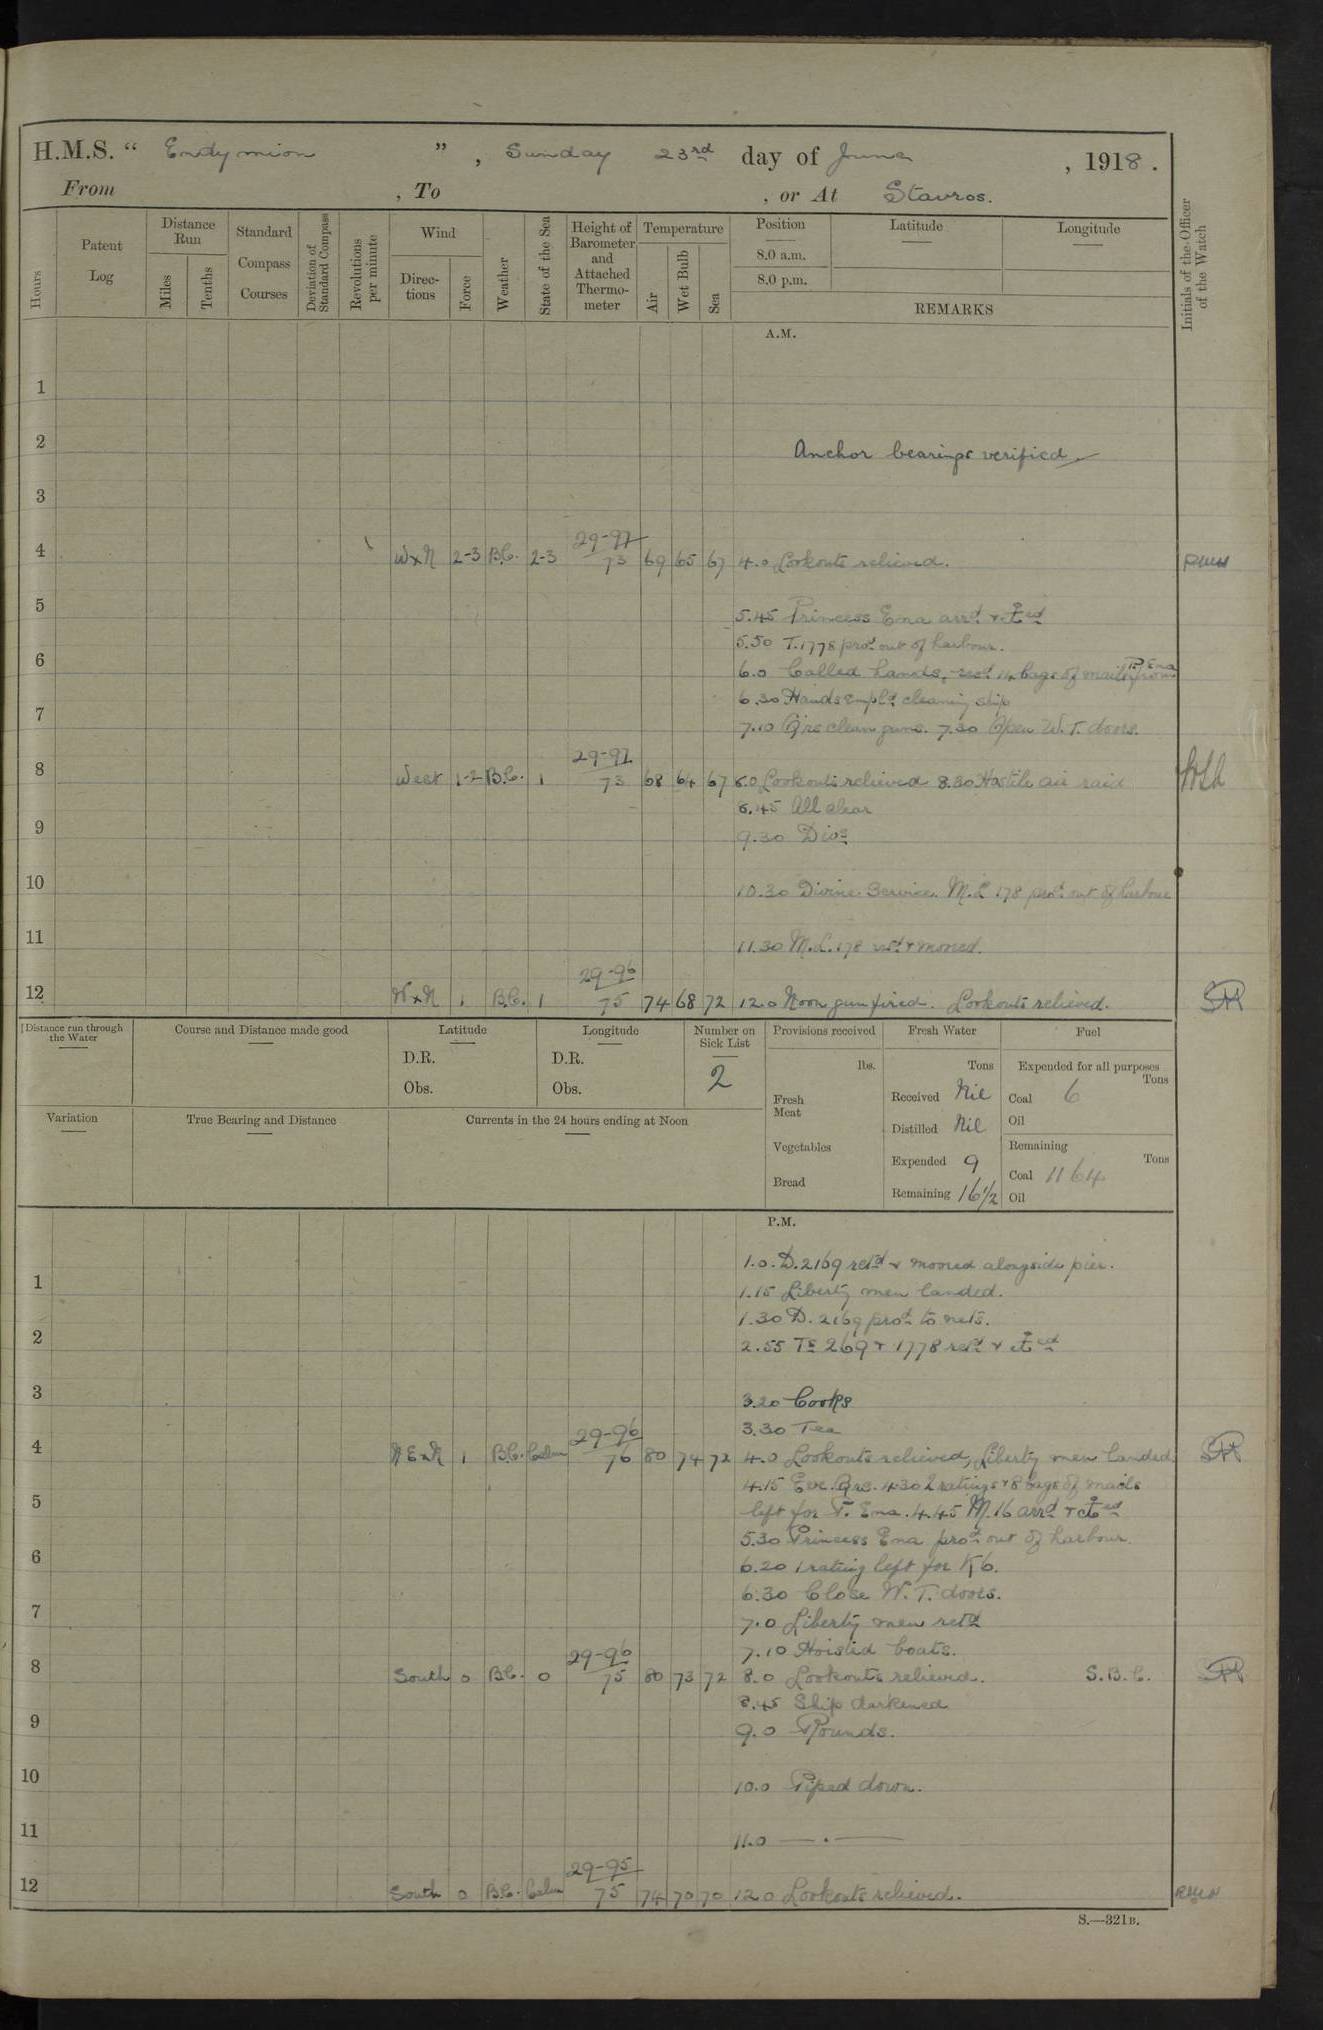 H.M.S. “ Endymion ” , Sunday 23rd day of June , 1918 .
From , To , or At Stavros.
Hours
Patent Log
Distance Run
Miles
Tenths
Standard Compass Courses
Deviation of Standard Compass
Revolutions per minute
Wind
Direc- tions
Force
Weather
State of the Sea
Height of Barometer and Attached Thermo- meter
Temperature
Air
Wet Bulb
Sea
Position
8.0 a.m.
8.0 p.m.
Latitude
Longitude
REMARKS
Initials of the Officer of the Watch
A.M.
1
2 Anchor bearings verified
3
29-97
4 WxN 2-3 B.C. 2-3 73 69 65 67 4.0 Lookouts relieved.
5 5.45 Princess Ena arrd &
5.50 T.1778 procd out of harbour.
6 6.0 Called hands, recd 14 bags of mails from P. Ena
6.30 Hands empld cleaning ship
7 7.10 Qrs clean guns. 7.30 Open W.T. doors.
29-97
8 West 1-2 B.C. 1 73 68 64 67 8.0 Lookouts relieved 8.30 Hostile air raid
8.45 All clear
9 9.30 Divs
10 10.30 Divine Service. M.L 178 procd out of harbour
11 11.30 M.L.178 retd & moored.
29-96
12 WxN 1 B.C. 1 75 74 68 72 12.0 Noon gun fired. Lookouts relieved.
Distance run through the Water
Course and Distance made good
Latitude
D.R.
Obs.
Longitude
D.R.
Obs.
Number on Sick List
2
Provisions received
lbs.
Fresh Meat
Vegetables
Bread
Fresh Water
Tons
Received Nil
Distilled Nil
Expended 9
Remaining 16 1/2
Fuel
Expended for all purposes
Tons
Coal 6
Oil
Remaining
Tons
Coal 1164
Oil
Variation
True Bearing and Distance
Currents in the 24 hours ending at Noon
P.M.
1.0. D.2169 retd & moored alongside pier.
1 1.15 Liberty men landed.
1.30 D. 2169 procd to nets.
2 2.55 Ts 269 & 1778 retd &
3 3.20 Cooks
3.30 Tea
29-96
4 NExN 1 B.C. Calm 76 80 74 72 4.0 Lookouts relieved, Liberty men landed.
4.15 Eve. Qrs. 4.30 2 ratings & 8 bags of mails
5 left for P. Ena. 4.45 M.16 arrd &
5.30 Princess Ena procd out of harbour.
6 6.20 1 rating left for
6.30 Close W.T. doors.
7 7.0 Liberty men retd
7.10 Hoisted boats.
29-96
8 South 0 B.C. 0 75 80 73 72 8.0 Lookouts relieved. S.B.C.
8.45 Ship darkened
9 9.0 Rounds.
10 10.0 Piped down.
11 11.0 — . —
29-95
12 South 0 B.C. Calm 75 74 70 70 12.0 Lookouts relieved.
S.—321B.